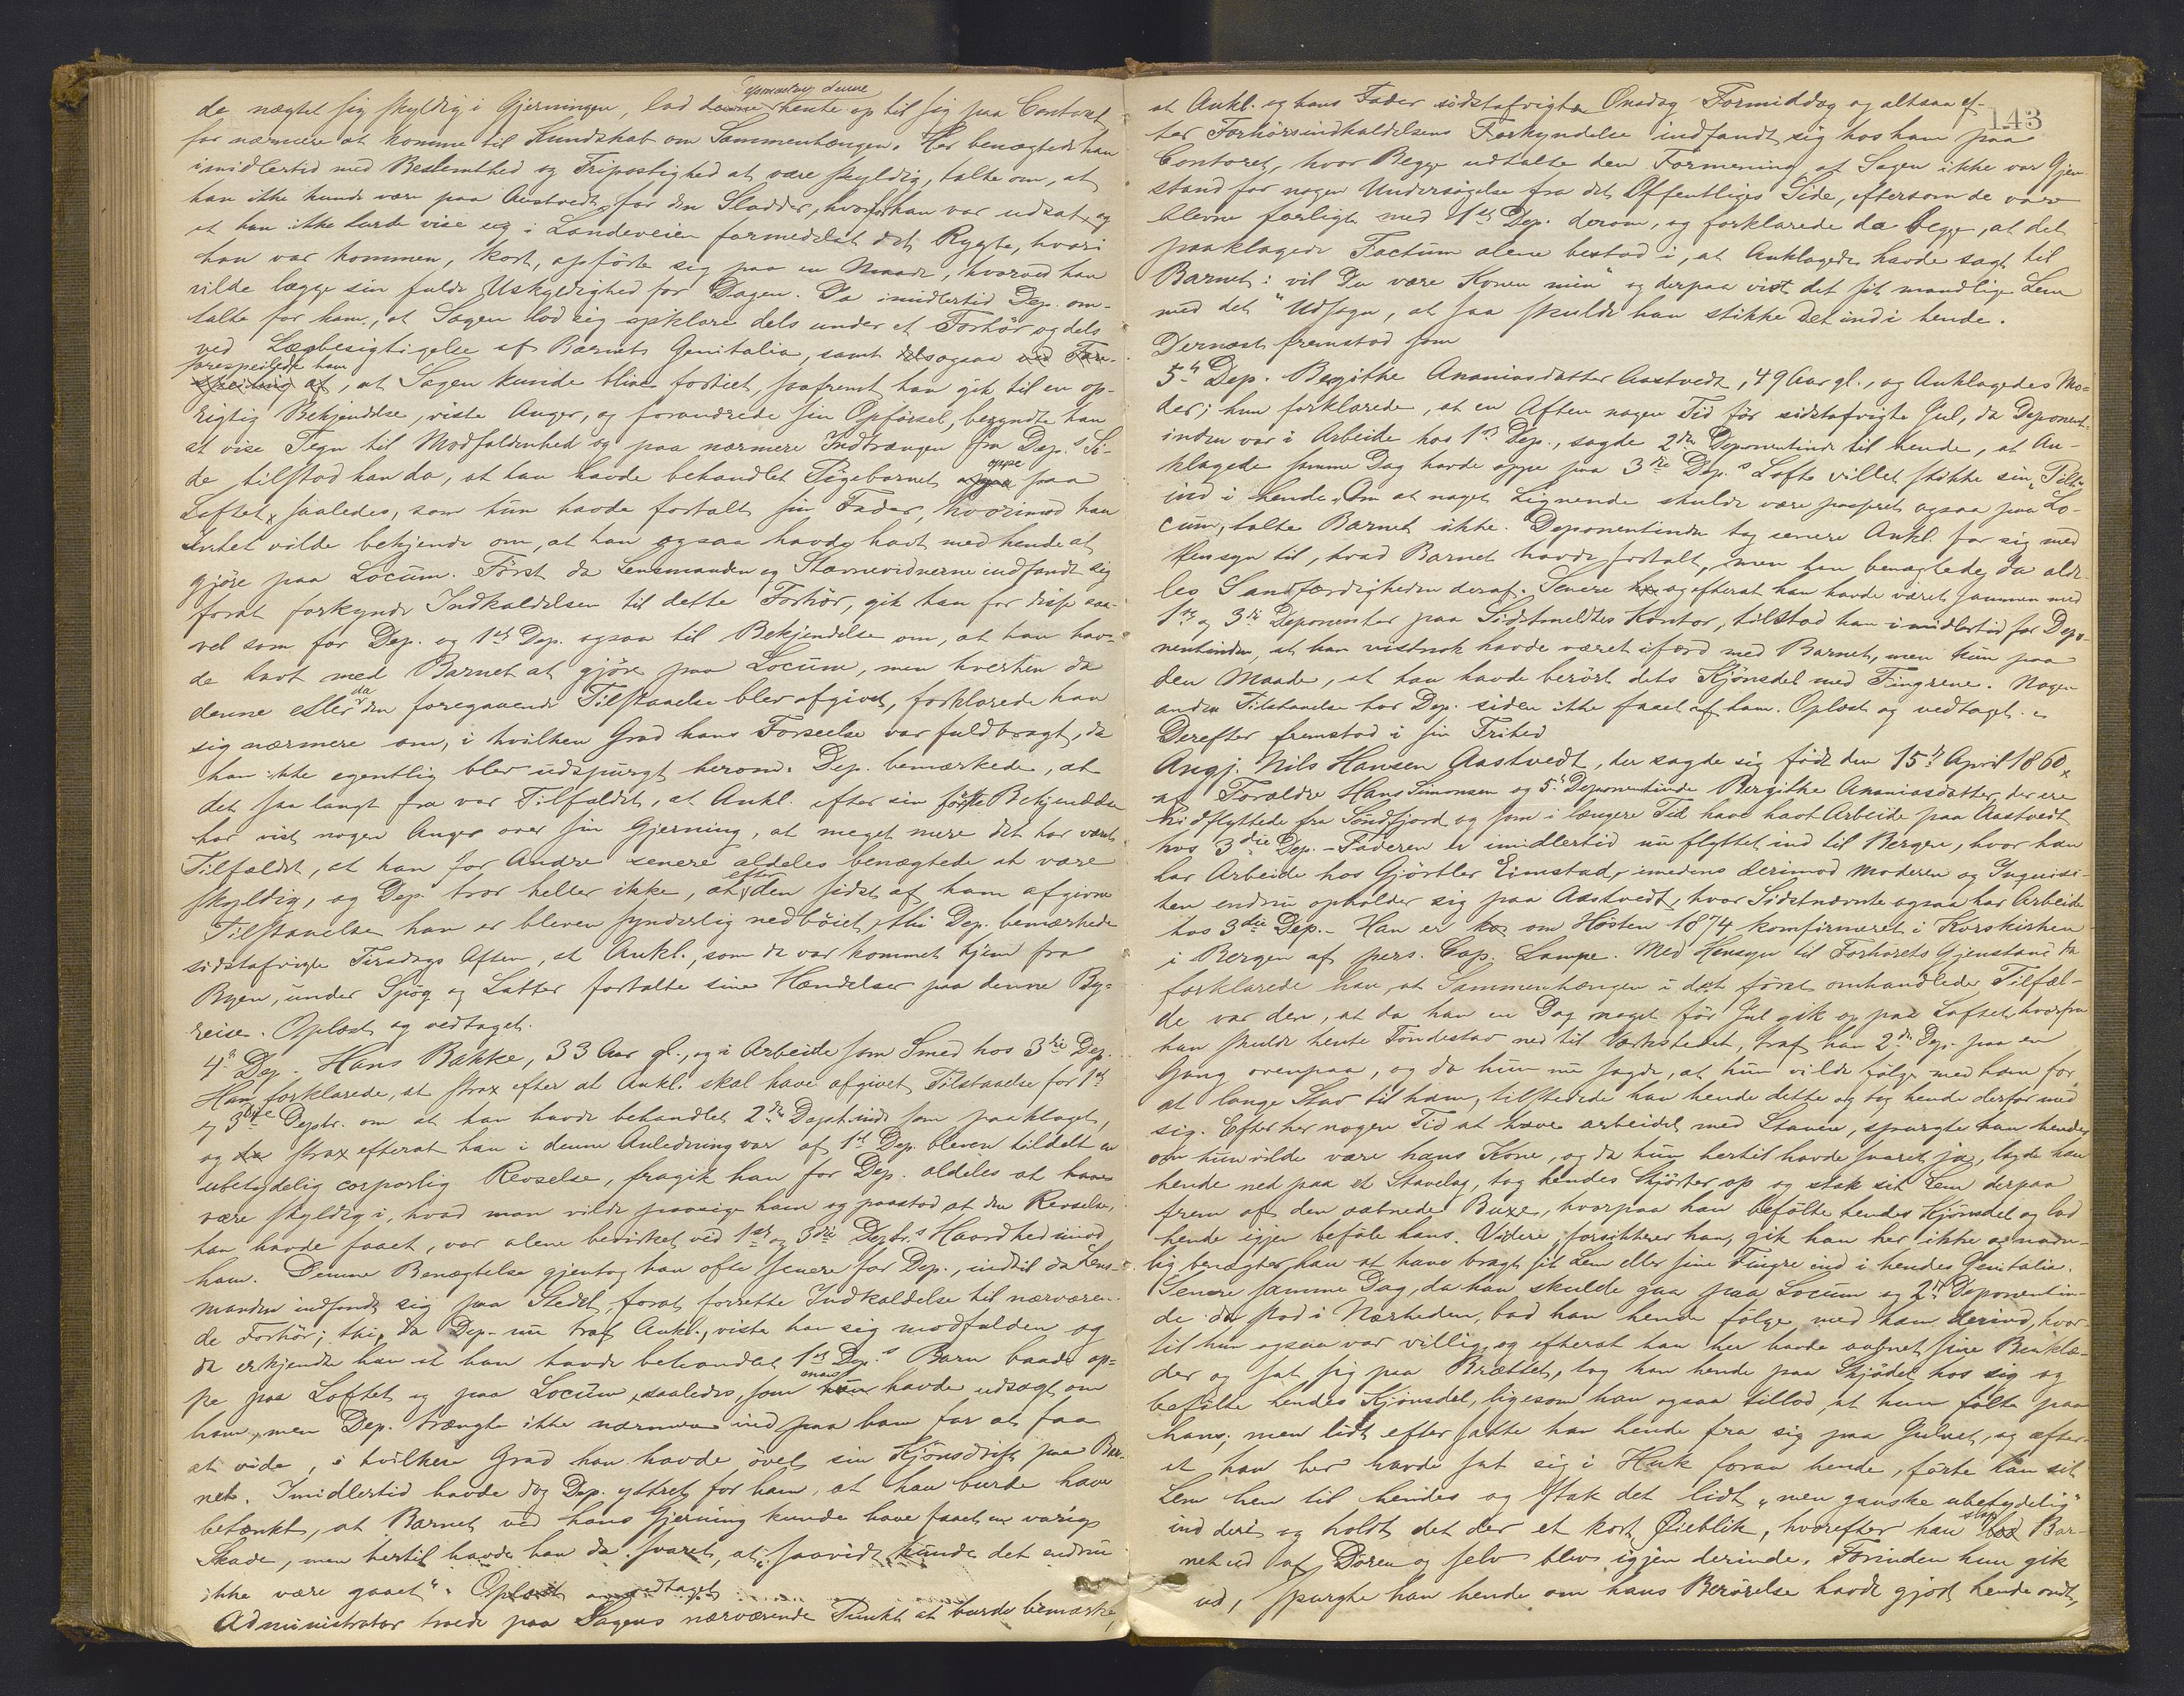 da nægtet sig skyldig i Gjerningen, lod Deponenten denne hente op til sig paa Contoret
for nærmere at komme til Kundskab om Sammenhængen. Her benægtede han
imidlertid med Bestemthed og Fripostighed at være skyldig, talte om, at
han ikke kunde være paa Aastvedt for den Sladder, hvorfor han var udsat, og
at han ikke turde vise sig i Landeveien formedelst det Rygte, hvori
han var kommen, kort, opførte sig paa en Maade, hvorved han
vilde lægge sin fulde Uskyldighed for Dagen. Da imidlertid Dep. om-
talte for ham, at Sagen lod sig opklare dels under et Forhør og dels
ved Lægbesigtigelse af Barnets Genitalia, samt
forespeilede ham, at Sagen kunde blive fortiet, saafremt han gik til en op-
rigtig Bekjendelse, viste Anger, og forandrede sin Opførsel, begyndte han
at vise Tegn til Modfaldenhed og paa nærmere Indtrængen fra Dep.s Si-
de tilstod han da, at han havde behandlet Pigebarnet oppe paa
Loftet saaledes, som hun havde fortalt sin Fader, hvorimod han
Intet vilde bekjende om, at han ogsaa havde havt med hende at
gjøre paa Locum. Først da Lensmanden og Stævnevidnerne indfandt sig
forat forkynde Indkaldelsen til dette Forhør, gik han for disse saa-
vel som for Dep. og 1ste Dep. ogsaa til Bekjendelse om, at han hav-
de havt med Barnet at gjøre paa Locum, men hverken da
denne eller da den foregaaende Tilstaaelse blev afgivet, forklarede han
sig nærmere om, i hvilken Grad hans Forseelse var fuldbragt, da
han ikke egentlig blev udspurgt herom. Dep. bemærkede, at
det saa langt fra var Tilfældet, at Ankl. efter sin første Bekjendelse
har vist nogen Anger over sin Gjerning, at meget mere det har været
Tilfældet, at han for Andre senere aldeles benægtede at være
skyldig, og Dep. tror heller ikke, at efter den sidst af ham afgivne
Tilstaaelse han er bleven synderlig nedbøiet, thi Dep. bemærkede
sidstafvigte Tirsdags Aften, at Ankl., som da var kommet hjem fra
Byen, under Spøg og Latter fortalte sine Hændelser paa denne By-
reise. Oplæst og vedtaget.
4de Dep. Hans Bakke, 33 Aar gl., og i Arbeide som Smed hos 3die Dep.
Han forklarede, at strax efter at Ankl. skal have afgivet Tilstaaelse for 1ste
og 3die Deptr. om at han havde behandlet 2den Deptinde som paaklaget,
og strax efterat han i denne Anledning var af 1ste Dep. bleven tildelt en
ubetydelig corporlig Revselse, fragik han for Dep. aldeles at have
være skyldig i, hvad man vilde paasige ham og paastod at den Revselse,
han havde faaet, var alene bevirket ved 1ste og 3die Deptr.s Haardhed imod
ham. Denne Benægtelse gjentog han ofte senere for Dep., indtil da Lens-
manden indfandt sig paa Stedet, forat forrette Indkaldelse til nærværen-
de Forhør; thi, da Dep. nu traf Ankl., viste han sig modfalden og
da erkjendte han at han havde behandlet 1ste Dep.s Barn baade op-
pe paa Loftet og paa Locum, saaledes, som havde udsagt om
ham, men Dep. trængte ikke nærmere ind paa ham for at faa
at vide, i hvilken Grad han havde øvet sin Kjønsdrift paa Bar-
net. Imidlertid havde dog Dep. yttret for ham, at han burde have
betænkt, at Barnet ved hans Gjerning kunde have faaet en varig
Skade, men hertil havde han da svaret, at „saavidt kunde det endnu
ikke være gaaet“. Oplæst og vedtaget
Administrator troede paa Sagens nærværende Punkt at burde bemærke,
143
at Ankl. og hans Fader sidstafvigte Onsdag Formiddag og altsaa ef-
ter Forhørsindkaldelsens Forkyndelse indfandt sig hos ham paa
Contoret, hvor Begge udtalte den Formening at Sagen ikke var Gjen-
stand for nogen Undersøgelse fra det Offentliges Side, eftersom de vare
blevne forligte med 1ste Dep. derom, og forklarede da begge, at det
paaklagede Factum alene bestod i, at Anklagede havde sagt til
Barnet: vil Du være Konen min“ og derpaa vist det sit mandlige Lem
med det Udsagn, at saa skulde han stikke det ind i hende.
Dernæst fremstod som
5te Dep. Bergithe Ananiasdatter Aastvedt, 49 Aar gl., og Anklagedes Mo-
der; hun forklarede, at en Aften nogen Tid før sidstafvigte Jul, da Deponent-
inden var i Arbeide hos 1ste Dep., sagde 2den Deponentinde til hende, at An-
klagede samme Dag havde oppe paa 3die Dep.s Loft villet stikke sin „Till“
ind i hende. Om at noget Lignende skulde være passeret ogsaa paa Lo-
cum, talte Barnet ikke. Deponentinden tog senere Ankl. for sig med
Hensyn til, hvad Barnet havde fortalt, men han benægtede da alde-
les Sandfærdigheden deraf. Senere og efterat han havde været sammen med
1ste og 3die Deponenter paa Sidstmeldtes Kontor, tilstod han imidlertid for Depo-
nentinden, at han vistnok havde været ifærd med Barnet, men kun paa
den Maade, at han havde berørt dets Kjønsdel med Fingrene. Nogen
anden Tilstaaelse har Dep. siden ikke faaet af ham. Oplæst og vedtaget.
Derefter fremstod i sin Frihed
Angj. Nils Hansen Aastvedt, der sagde sig født den 15de April 1860
af Forældre Hans Simonsen og 5te Deponentinde Bergithe Ananiasdatter, der ere
hidflyttede fra Søndfjord og som i længere Tid have havt Arbeide paa Aastvedt
hos 3die Dep. – Faderen er imidlertid nu flyttet ind til Bergen, hvor han
har Arbeide hos Gjørtler Eimstad, imedens derimod Moderen og Inquisi-
ten endnu opholder sig paa Aastvedt, hvor Sidstnævnte ogsaa har Arbeide
hos 3die Dep. – Han er om Høsten 1874 konfirmeret i Korskirken
i Bergen af pers. Cap. Lampe. Med Hensyn til Forhørets Gjenstand
forklarede han, at Sammenhængen i det først omhandlede Tilfæl-
de var den, at da han en Dag noget før Jul gik op paa Loftet, hvorfra
han skulde hente Tøndestav ned til Værkstedet, traf han 2den Dep. paa en
Gang ovenpaa, og da hun nu sagde, at hun vilde følge med ham for
at lange Stav til ham, tilstedede han hende dette og tog hende derfor med
sig. Efter her nogen Tid at have arbeidet med Staven, spurgte han hende,
om hun vilde være hans Kone, og da hun hertil havde svaret ja, lagde han
hende ned paa et Stavelag, tog hendes Skjørter op og stak sit Lem derpaa
frem af den aabnede Buxe, hvorpaa han befølte hendes Kjønsdel og lod
hende igjen beføle hans. Videre, forsikkrer han, gik han her ikke og navn-
lig benægter han at have bragt sit Lem eller sine Fingre ind i hendes Genitalia.
Senere samme Dag, da han skulde gaa paa Locum og 2den Deponentin-
de da stod i Nærheden, bad han hende følge med ham derind, hvor-
til hun ogsaa var villig, og efterat han her havde aabnet sine Benklæ-
der og sat sig paa Brættet, tog han hende paa Skjødet hos sig og
befølte hendes Kjønsdel, ligesom han ogsaa tillod, at hun følte paa
hans; men lidt efter satte han hende fra sig paa Gulvet, og efter-
at han her havde sat sig i Huk foran hende, førte han sit
Lem hen til hendes og stak det lidt, „men ganske ubetydelig“
ind deri og holdt det der et kort Øieblik, hvorefter han slap Bar-
net ud af Døren og selv blev igjen derinde. Forinden hun gik
ud, spurgte han hende om hans Berørelse havde gjort hende ondt,